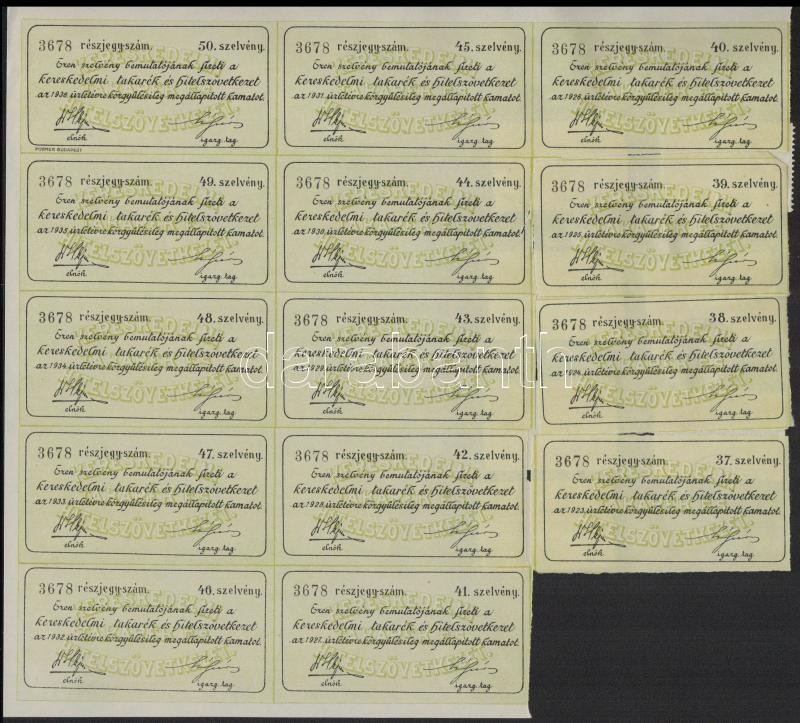 3678 részjegy-szám. 50. szelvény.
Ezen szelvény bemutatójának fizeti a
kereskedelmi takarék és hitelszövetkezet
az 1936. üzletévre közgyűlésileg megállapított kamatot.
elnök. igazg. tag.
PosNER BUDAPEST
3678 részjegy-szám. 45. szelvény.
Ezen szelvény bemutatójának fizeti a
kereskedelmi takarék és hitelszövetkezet
az 1931. üzletévre közgyűlésileg megállapított kamatot.
elnök. igazg. tag.
3678 részjegy-szám. 40. szelvény.
Ezen szelvény bemutatójának fizeti a
kereskedelmi takarék és hitelszövetkezet
az 1926. üzletévre közgyűlésileg megállapított kamatot.
elnök. igazg. tag.
3678 részjegy-szám. 49. szelvény.
Ezen szelvény bemutatójának fizeti a
kereskedelmi takarék és hitelszövetkezet
az 1935. üzletévre közgyűlésileg megállapított kamatot.
elnök. igazg. tag.
3678 részjegy-szám. 44. szelvény.
Ezen szelvény bemutatójának fizeti a
kereskedelmi takarék és hitelszövetkezet
az 1930. üzletévre közgyűlésileg megállapított kamatot.
elnök. igazg. tag.
3678 részjegy-szám. 39. szelvény.
Ezen szelvény bemutatójának fizeti a
kereskedelmi takarék és hitelszövetkezet
az 1925. üzletévre közgyűlésileg megállapított kamatot.
elnök. igazg. tag.
3678 részjegy-szám. 48. szelvény.
Ezen szelvény bemutatójának fizeti a
kereskedelmi takarék és hitelszövetkezet
az 1934. üzletévre közgyűlésileg megállapított kamatot.
elnök. igazg. tag.
3678 részjegy-szám. 43. szelvény.
Ezen szelvény bemutatójának fizeti a
kereskedelmi takarék és hitelszövetkezet
az 1929. üzletévre közgyűlésileg megállapított kamatot.
elnök. igazg. tag.
3678 részjegy-szám. 38. szelvény.
Ezen szelvény bemutatójának fizeti a
kereskedelmi takarék és hitelszövetkezet
az 1924. üzletévre közgyűlésileg megállapított kamatot.
elnök. igazg. tag.
3678 részjegy-szám. 47. szelvény.
Ezen szelvény bemutatójának fizeti a
kereskedelmi takarék és hitelszövetkezet
az 1933. üzletévre közgyűlésileg megállapított kamatot.
elnök. igazg. tag.
3678 részjegy-szám. 42. szelvény.
Ezen szelvény bemutatójának fizeti a
kereskedelmi takarék és hitelszövetkezet
az 1928. üzletévre közgyűlésileg megállapított kamatot.
elnök. igazg. tag.
3678 részjegy-szám. 37. szelvény.
Ezen szelvény bemutatójának fizeti a
kereskedelmi takarék és hitelszövetkezet
az 1923. üzletévre közgyűlésileg megállapított kamatot.
elnök. igazg. tag.
3678 részjegy-szám. 46. szelvény.
Ezen szelvény bemutatójának fizeti a
kereskedelmi takarék és hitelszövetkezet
az 1932. üzletévre közgyűlésileg megállapított kamatot.
elnök. igazg. tag.
3678 részjegy-szám. 41. szelvény.
Ezen szelvény bemutatójának fizeti a
kereskedelmi takarék és hitelszövetkezet
az 1927. üzletévre közgyűlésileg megállapított kamatot.
elnök. igazg. tag.